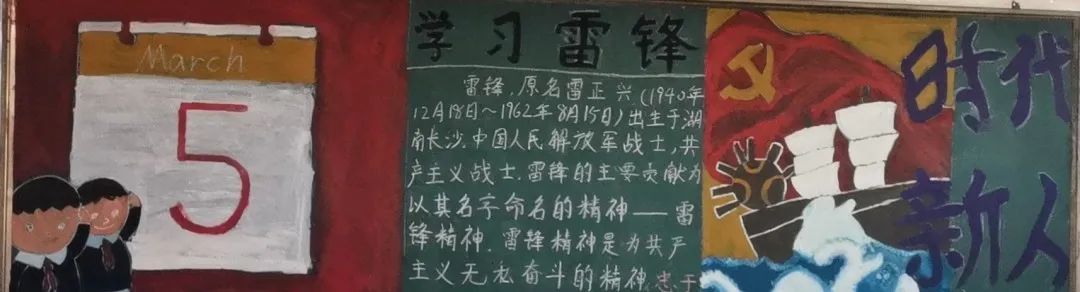 March
5
学习雷锋
雷锋，原名雷正兴（1940年
12月18日～1962年8月15日）出生于湖
南长沙，中国人民解放军战士，共
产主义战士，雷锋的主要贡献为
以其名字命名的精神——雷
锋精神，雷锋精神是为共产
主义无私奋斗的精神，忠于
时代
新人